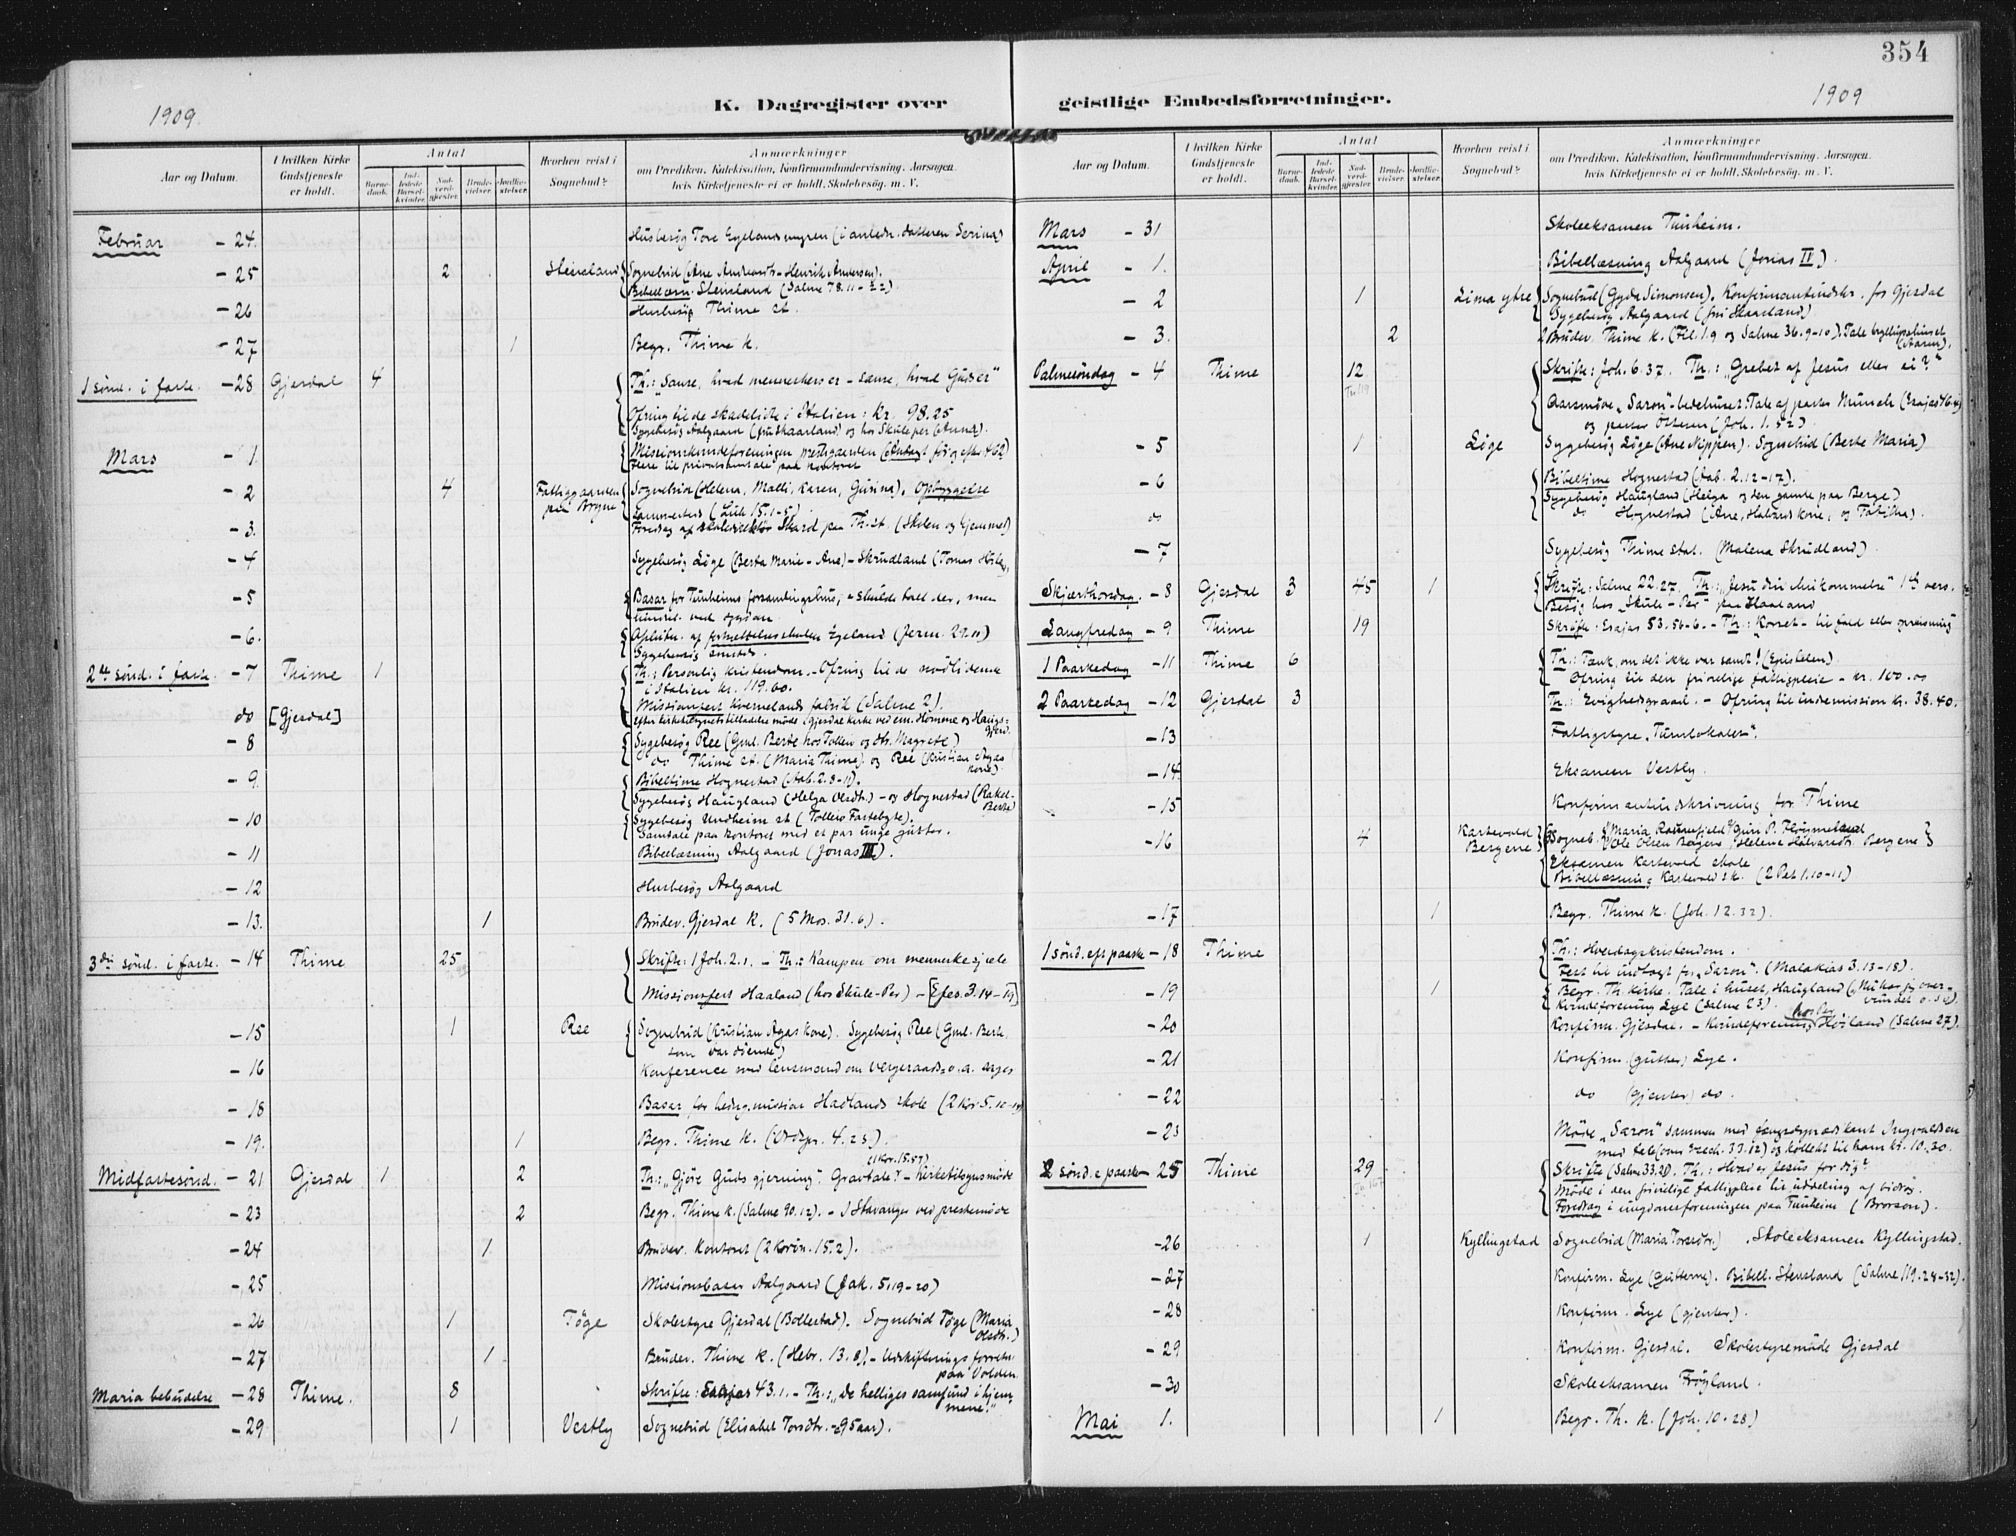 354
1909.
K. Dagregister over
geistlige Embedsforretninger.
1909
Aar og Datum.
I hvilken Kirke Gudstjeneste er holdt.
Antal
Barne-daab.
Ind-ledede Barsel-kvinder.
Nad-verd-gjester.
Brude-vielser.
Jordfæ-stelser.
Hvorhen reist i Sognebud?
Anmærkninger
om Prædiken, Katekisation, Konfirmandundervisning, Aarsagen, hvis Kirketjeneste ei er holdt, Skolebesøg, m. V.
Februar - 24. Husbesøg Tore Egelandsmyren (i anledn. datteren Serina)
- 25 2 Steinsland Sognebud (Ane Andreasdtr - Henrik Andersen).
Bibellæsn. Steinsland (Salme 78.11-22).
- 26 Husbesøg Thime st.
- 27 1 Begr. Thime k.
1 sønd. i faste. - 28 Gjesdal 4 Th.: "Sanse, hvad menneskers er - sanse, hvad Guds er"
Ofring til de skadelidte i Italien: kr. 98.25
Sygebesøg Aalgaard (fru Skaarland) og hos Skuleper (Anna).
Mars - 1. Missionskvindeforeningen prestgaarden
- 2 4 Fattiggaarden paa Bryne Sognebud (Helena, Malli, Karen, Gurina). Opbyggelse
sammesteds (Luk 15.1-5)
- 3. Foredrag af skoledirektør Skard paa Th. st. (Skolen og hjemmet)
- 4 Sygebesøg Lüge (Berta Marie - Ane) - Skrudland
- 5 Basar for Tunheims forsamlingshus, - skulde talt der, men
hindret ved sygdom
- 6. Afslutn. af fortsættelsesskolen Egeland (Jerem. 29.11)
Sygebesøg smsteds.
2den sønd. i faste. - 7 Thime 1 Th.: Personlig kristendom. - Ofring til de nødlidende
i Italien kr. 119.60.
Missionsfest Kvernelands fabrik (Salme 2).
do [Gjesdal] Efter biskopens tilladelse møde i Gjesdal kirke ved em. Homme og Haugs-
- 8 Sygebesøg Ree (Gml. Berte hos Tollev og dtr. Magrete)
do Thime st. (Maria Thime) og Ree (Kristian Agas kone)
- 9. Bibeltime Hognestad (Aab. 2.8-11).
Sygebesøg Haugland (Helga Olsdtr.) - og Hognestad (Rakel - Berte)
- 10 Sygebesøg Undheim st (Tolleiv Fastebyte).
Samtale paa kontoret med et par unge gutter.
- 11 Bibellæsning Aalgaard (Jonas III).
- 12 Husbesøg Aalgaard
- 13. 1 Brudev. Gjesdal k. (5 Mos. 31.6).
3die sønd. i faste. - 14 Thime 25 Skrifte: 1 Joh. 2.1. - Th.: Kampen om menneskesjæle
Missionsfest Haaland (hos Skule-Per) - [Efes. 3.14-19]
- 15 1 Ree Sognebud (Kristian Agas kone). Sygebesøg Ree (Gml. Berte
som var døende)
- 16 Konference med lensmand om vergeraads- o. a. sager
- 18 Basar for hedn. mission Haalands skole (2 Kor 5.10-14)
- 19. 1 Begr. Thime k. (Ordspr. 4.23).
(1 Kor. 15.57)
Midfastesønd. - 21 Gjesdal 1 2 Th.: "Gjøre Guds gjerning". Gravtale. - Kirketilsynsmøde
- 23 2 Begr. Thime k. (Salme 90.12). - I Stavanger ved prestemøde
- 24 1 Brudev. kontoret (2 Korin. 15.2).
- 25 Missionsbasar Aalgaard (Jak. 5.19-20)
- 26 1 Töge Skolestyre Gjesdal (Bollestad). Sognebud Töge (Maria Olsdtr.)
- 27 1 Brudev. Thime k. (Hebr. 13.8). - Udskiftningsforretn.
paa Volden.
Maria bebudelse - 28 Thime. 8 Skrifte: Esajas 43.1. - Th.: "De helliges samfund i hjem-
mene."
- 29 1 Vestly Sognebud (Elisabet Torsdtr. - 95 aar).
Aar og Datum.
I hvilken Kirke Gudstjeneste er holdt.
Antal
Barne-daab.
Ind-ledede Barsel-kvinder.
Nad-verd-gjester.
Brude-vielser.
Jordfæ-stelser.
Hvorhen reist i Sognebud?
Anmærkninger
om Prædiken, Katekisation, Konfirmandundervisning, Aarsagen, hvis Kirketjeneste ei er holdt, Skolebesøg, m. V.
Mars - 31 Skoleeksamen Tunheim.
April - 1. Bibellæsning Aalgaard (Jonas IV).
- 2 1 Lima ytre Sognebud (Gyda Simonsen). Konfirmantindskr. for Gjesdal
Sygebesøg Aalgaard (fru Skaarland)
- 3. 2 2 Brudev. Thime k. (Fil. 1.9 og Salme 36.9-10). Tale bryllupshuset
Palmesøndag - 4 Thime 12 Skrifte: Joh. 6.37. Th.: "Grebet af Jesus eller ei?"
Aarsmøde "Saron" - bedehuset: Tale af pastor Munch
og pastor Ottesen (Joh. 1.52).
- 5 1 Lüge Sygebesøg Lüge (Ane Nippen). Sognebud (Berte Maria)
- 6 Bibeltime Hognestad (Aab. 2.12-17).
Sygebesøg Haugland (Helga og den gamle paa Berge)
do do Hognestad
- 7 Sygebesøg Thime stat. (Malena Skrudland)
Skjærthorsdag. - 8 Gjesdal 3 45 1 Skrifte: Salme 22.27. Th.: "Jesu din ihukommelse" 1ste vers.
Besøg hos "Skule-Per" paa Haaland
Langfredag - 9 Thime 19 Skrifte: Esajas 53.5b-6. - Th.: "Korset - til fald eller opreisning"
1 Paaskedag - 11 Thime 6 Th.: Tænk, om det ikke var sandt! (Epistelen).
Ofring til den frivillige fattigpleie - kr. 100.00
2 Paaskedag - 12 Gjesdal 3 Th.: Evighedsgraad. - Ofring til indremission kr. 38.40.
- 13 Fattigstyre "Turnlokalet".
- 14. Eksamen Vestly.
- 15 Konfirmantindskrivning for Thime
- 16 4 Kartevold Bergene
Eksamen Kartevold skole
Bibellæsning Kartevold sk. (2 Pet 1.10-11)
- 17 1 Begr. Thime k. (Joh. 12.32).
1 sønd. eft paaske - 18 Thime Th.: Hverdagskristendom.
Fest til indtægt for "Saron". (Malakias 3.13-18).
- 19 1 Begr. Th. kirke. Tale i huset, Haugland
Kvindeforening Lye (Salme 23).
- 20 Konfirm. Gjesdal. - Kvindeforening hos Per Høiland (Salme 27).
- 21 Konfirm. (gutter) Lye.
- 22 do (gjenter) do.
- 23 Møde "Saron" sammen med fængselsprædikant Ingvaldsen
med tale (om Ezech. 33.12) og kollekt til ham kr. 10.30.
2 sønd. e paaske - 25 Thime 29 Skrifte (Salme 33.21). Th.: Hvad er Jesus for dig?
Møde i den frivillige fattigpleie til uddeling af bidrag.
Foredrag i ungdomsforeningen paa Tunheim (Brorson).
- 26 1 Kyllingstad Sognebud (Maria Torsdtr.). Skoleeksamen Kyllingstad.
- 27 Konfirm. Lye (Gutterne). Bibell. Stensland (Salme 119.24-32).
- 28 Konfirm. Lye (gjenter).
- 29 Konfirm. Gjesdal. Skolestyremøde Gjesdal
- 30 Skoleeksamen Frøyland.
Mai 1. 1 Begr. Th. k. (Joh. 10.28)